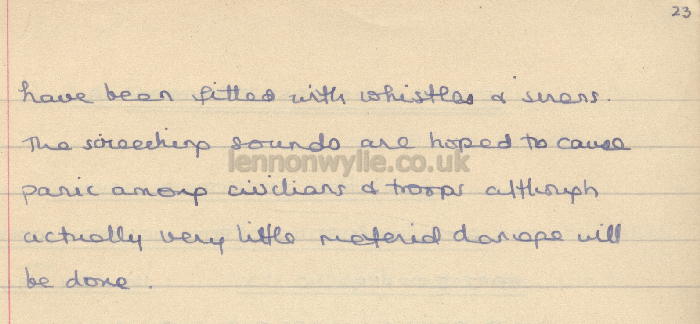 23
have been fitted with whistles & sirens.
The screeching sounds are hoped to cause
lennonwylie.co.uk
panic among civilians & troops although
actually very little material damage will
be done.